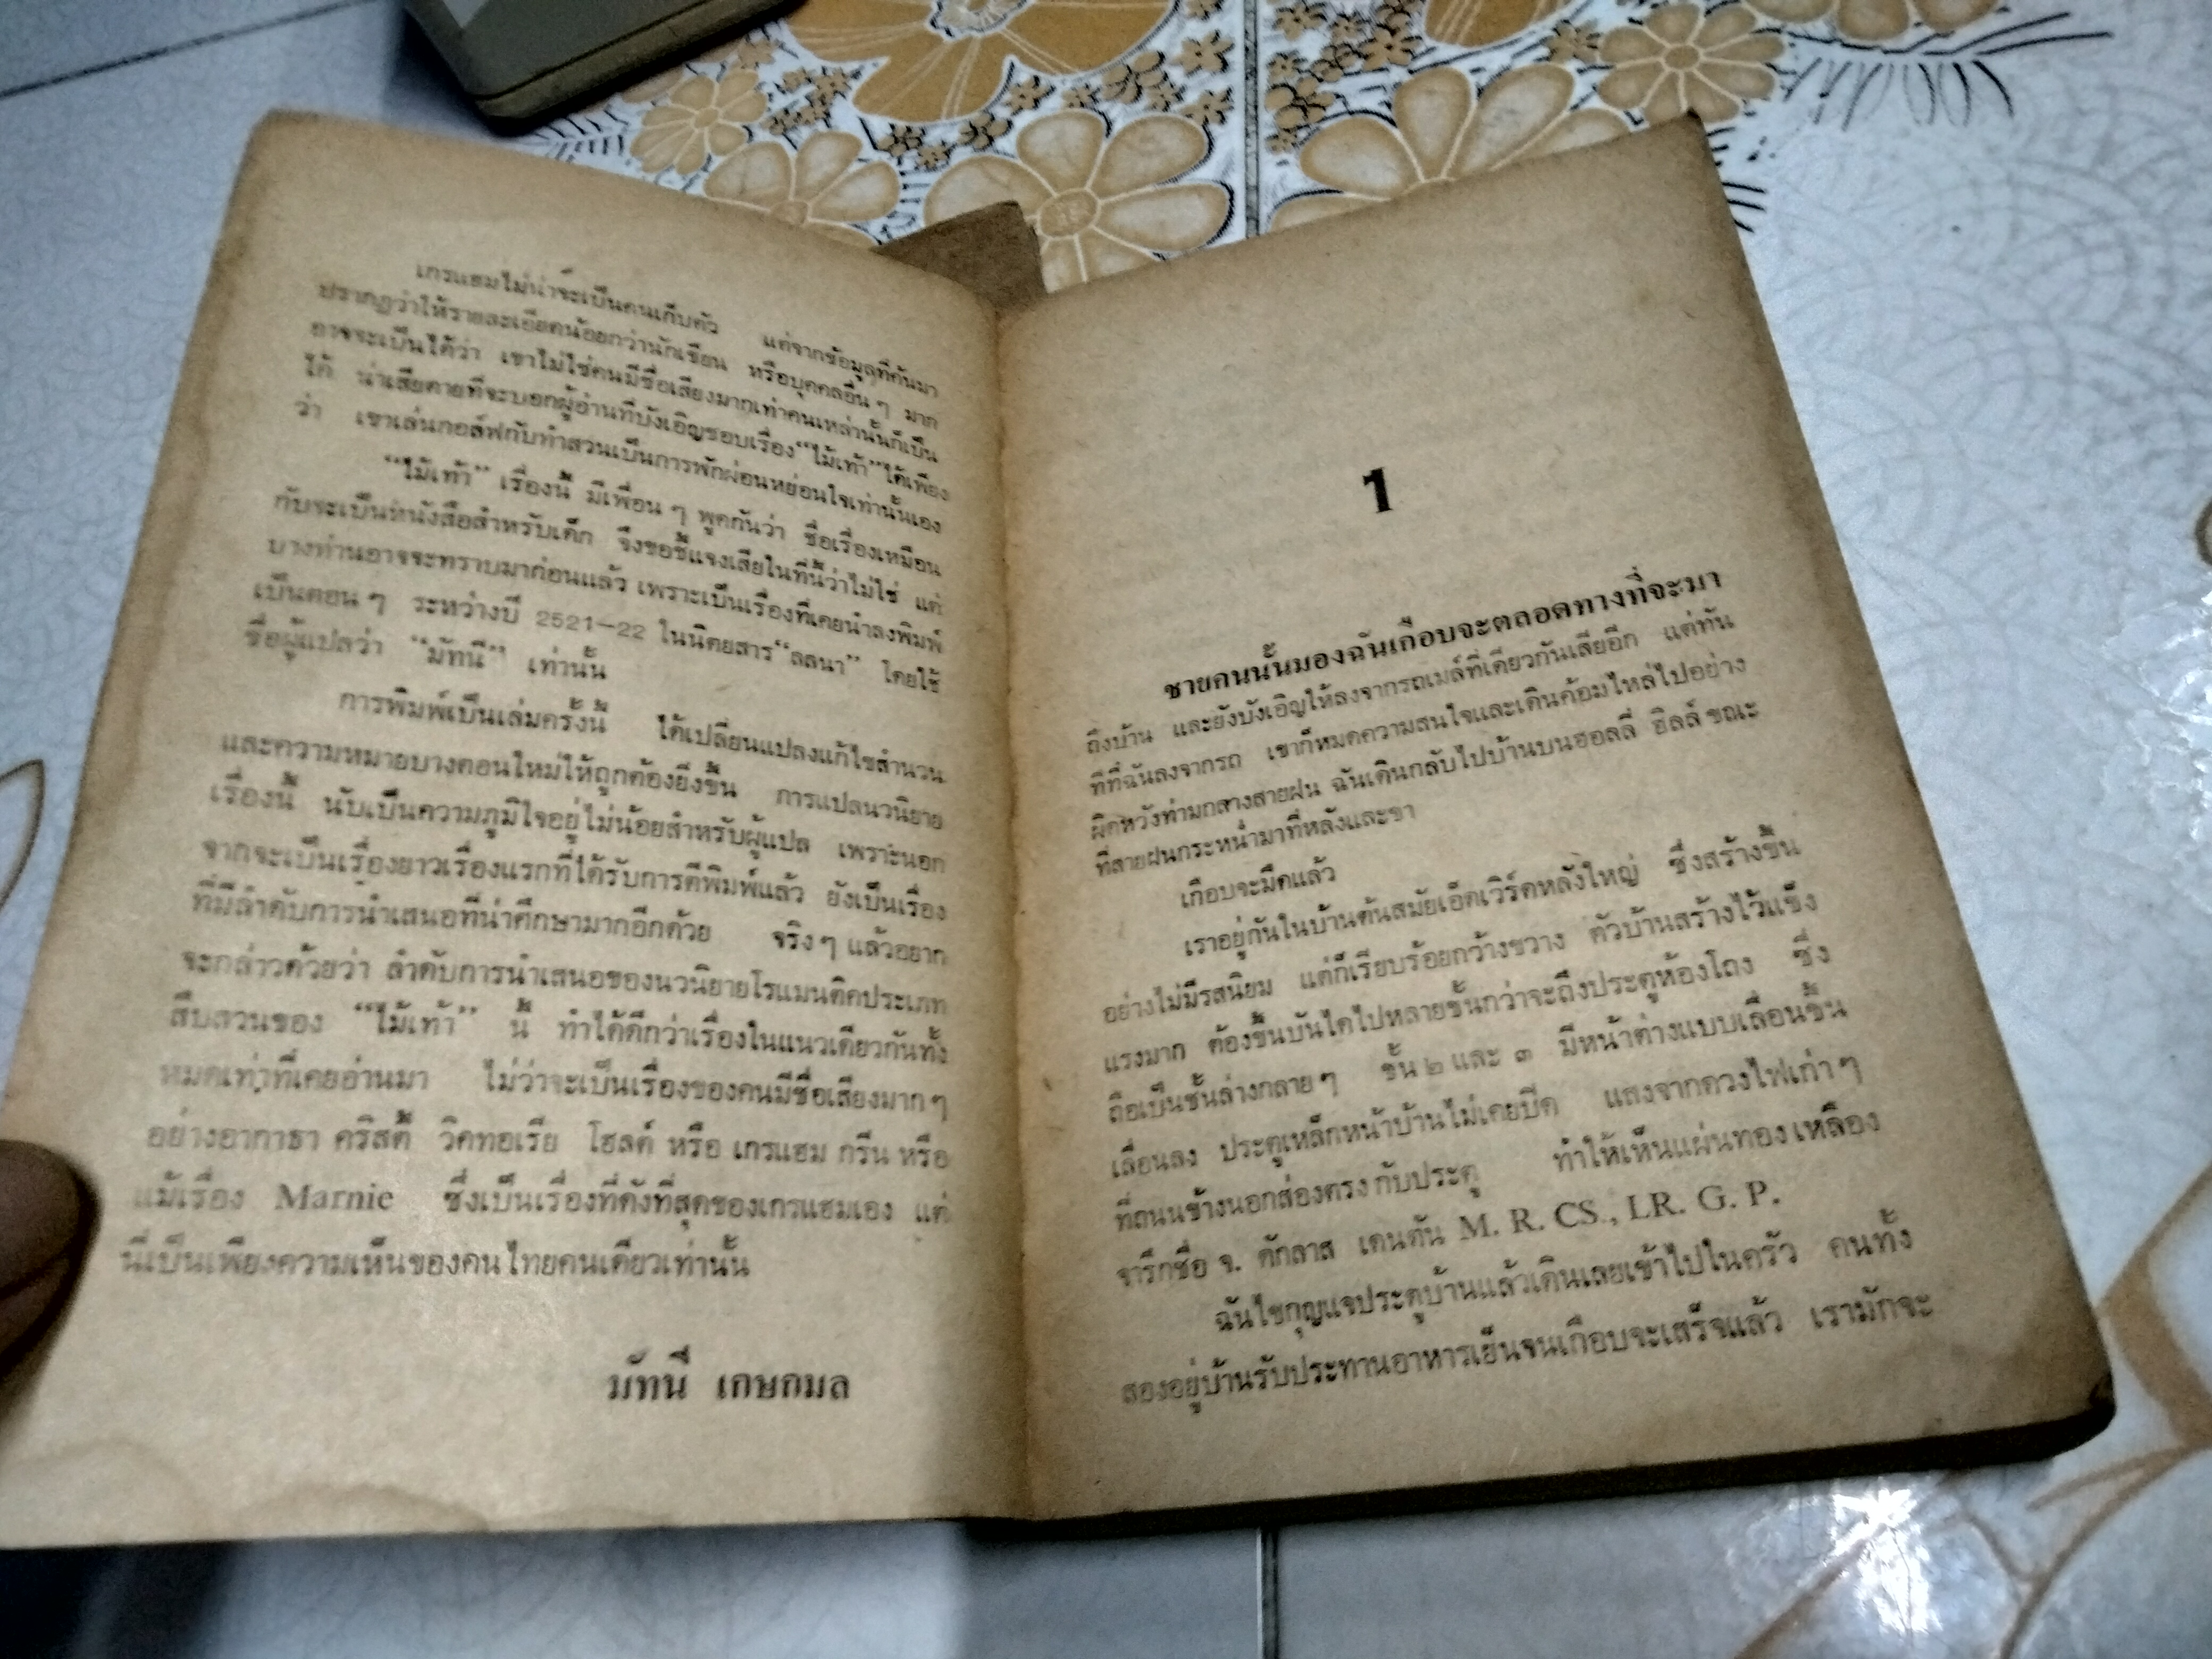 เกรแฮมไม่น่าจะเป็นคนเก็บตัว แต่จากข้อมูลที่ค้นมา
ปรากฏว่าให้รายละเอียดน้อยกว่านักเขียน หรือบุคคลอื่น ๆ มาก
อาจจะเป็นได้ว่า เขาไม่ใช่คนมีชื่อเสียงมากเท่าคนเหล่านั้นก็เป็น
ได้ น่าเสียดายที่จะบอกผู้อ่านที่บังเอิญชอบเรื่อง“ไม้เท้า”ได้เพียง
ว่า เขาเล่นกอล์ฟกับทำสวนเป็นการพักผ่อนหย่อนใจเท่านั้นเอง
“ไม้เท้า” เรื่องนี้ มีเพื่อน ๆ พูดกันว่า ชื่อเรื่องเหมือน
กับจะเป็นหนังสือสำหรับเด็ก จึงขอชี้แจงเสียในที่นี้ว่าไม่ใช่ แต่
บางท่านอาจจะทราบมาก่อนแล้ว เพราะเป็นเรื่องที่เคยนำลงพิมพ์
เป็นตอน ๆ ระหว่างปี 2521-22 ในนิตยสาร“ลลนา” โดยใช้
ชื่อผู้แปลว่า “มัทนี” เท่านั้น
การพิมพ์เป็นเล่มครั้งนี้ ได้เปลี่ยนแปลงแก้ไขสำนวน
และความหมายบางตอนใหม่ให้ถูกต้องยิ่งขึ้น การแปลนวนิยาย
เรื่องนี้ นับเป็นความภูมิใจอยู่ไม่น้อยสำหรับผู้แปล เพราะนอก
จากจะเป็นเรื่องยาวเรื่องแรกที่ได้รับการตีพิมพ์แล้ว ยังเป็นเรื่อง
ที่มีลำดับการนำเสนอที่น่าศึกษามากอีกด้วย จริง ๆ แล้วอยาก
จะกล่าวด้วยว่า ลำดับการนำเสนอของนวนิยายโรแมนติคประเภท
สืบสวนของ “ไม้เท้า” นี้ ทำได้ดีกว่าเรื่องในแนวเดียวกันทั้ง
หมดเท่าที่เคยอ่านมา ไม่ว่าจะเป็นเรื่องของคนมีชื่อเสียงมาก ๆ
อย่างอากาธา คริสตี้ วิคทอเรีย โฮลต์ หรือ เกรแฮม กรีน หรือ
แม้เรื่อง Marnie ซึ่งเป็นเรื่องที่ดังที่สุดของเกรแฮมเอง แต่
นี่เป็นเพียงความเห็นของคนไทยคนเดียวเท่านั้น
มัทนี เกษกมล
1
ชายคนนั้นมองฉันเกือบจะตลอดทางที่จะมา
ถึงบ้าน และยังบังเอิญให้ลงจากรถเมล์ที่เดียวกันเสียอีก แต่ทัน
ทีที่ฉันลงจากรถ เขาก็หมดความสนใจและเดินค้อมไหล่ไปอย่าง
ผิดหวังท่ามกลางสายฝน ฉันเดินกลับไปบ้านบนฮอลลี่ ฮิลล์ ขณะ
ที่สายฝนกระหน่ำมาที่หลังและขา
เกือบจะมืดแล้ว
เราอยู่กันในบ้านต้นสมัยเอ็ดเวิร์ดหลังใหญ่ ซึ่งสร้างขึ้น
อย่างไม่มีรสนิยม แต่ก็เรียบร้อยกว้างขวาง ตัวบ้านสร้างไว้แข็ง
แรงมาก ต้องขึ้นบันไดไปหลายขั้นกว่าจะถึงประตูห้องโถง ซึ่ง
ถือเป็นชั้นล่างกลาย ๆ ชั้น ๒ และ ๓ มีหน้าต่างแบบเลื่อนขึ้น
เลื่อนลง ประตูเหล็กหน้าบ้านไม่เคยปิด แสงจากดวงไฟเก่า ๆ
ที่ถนนข้างนอกส่องตรงกับประตู ทำให้เห็นแผ่นทองเหลือง
จารึกชื่อ จ. ดักลาส เดนตัน M. R. CS., LR. G. P.
ฉันไขกุญแจประตูบ้านแล้วเดินเลยเข้าไปในครัว คนทั้ง
สองอยู่บ้านรับประทานอาหารเย็นจนเกือบจะเสร็จแล้ว เรามักจะ